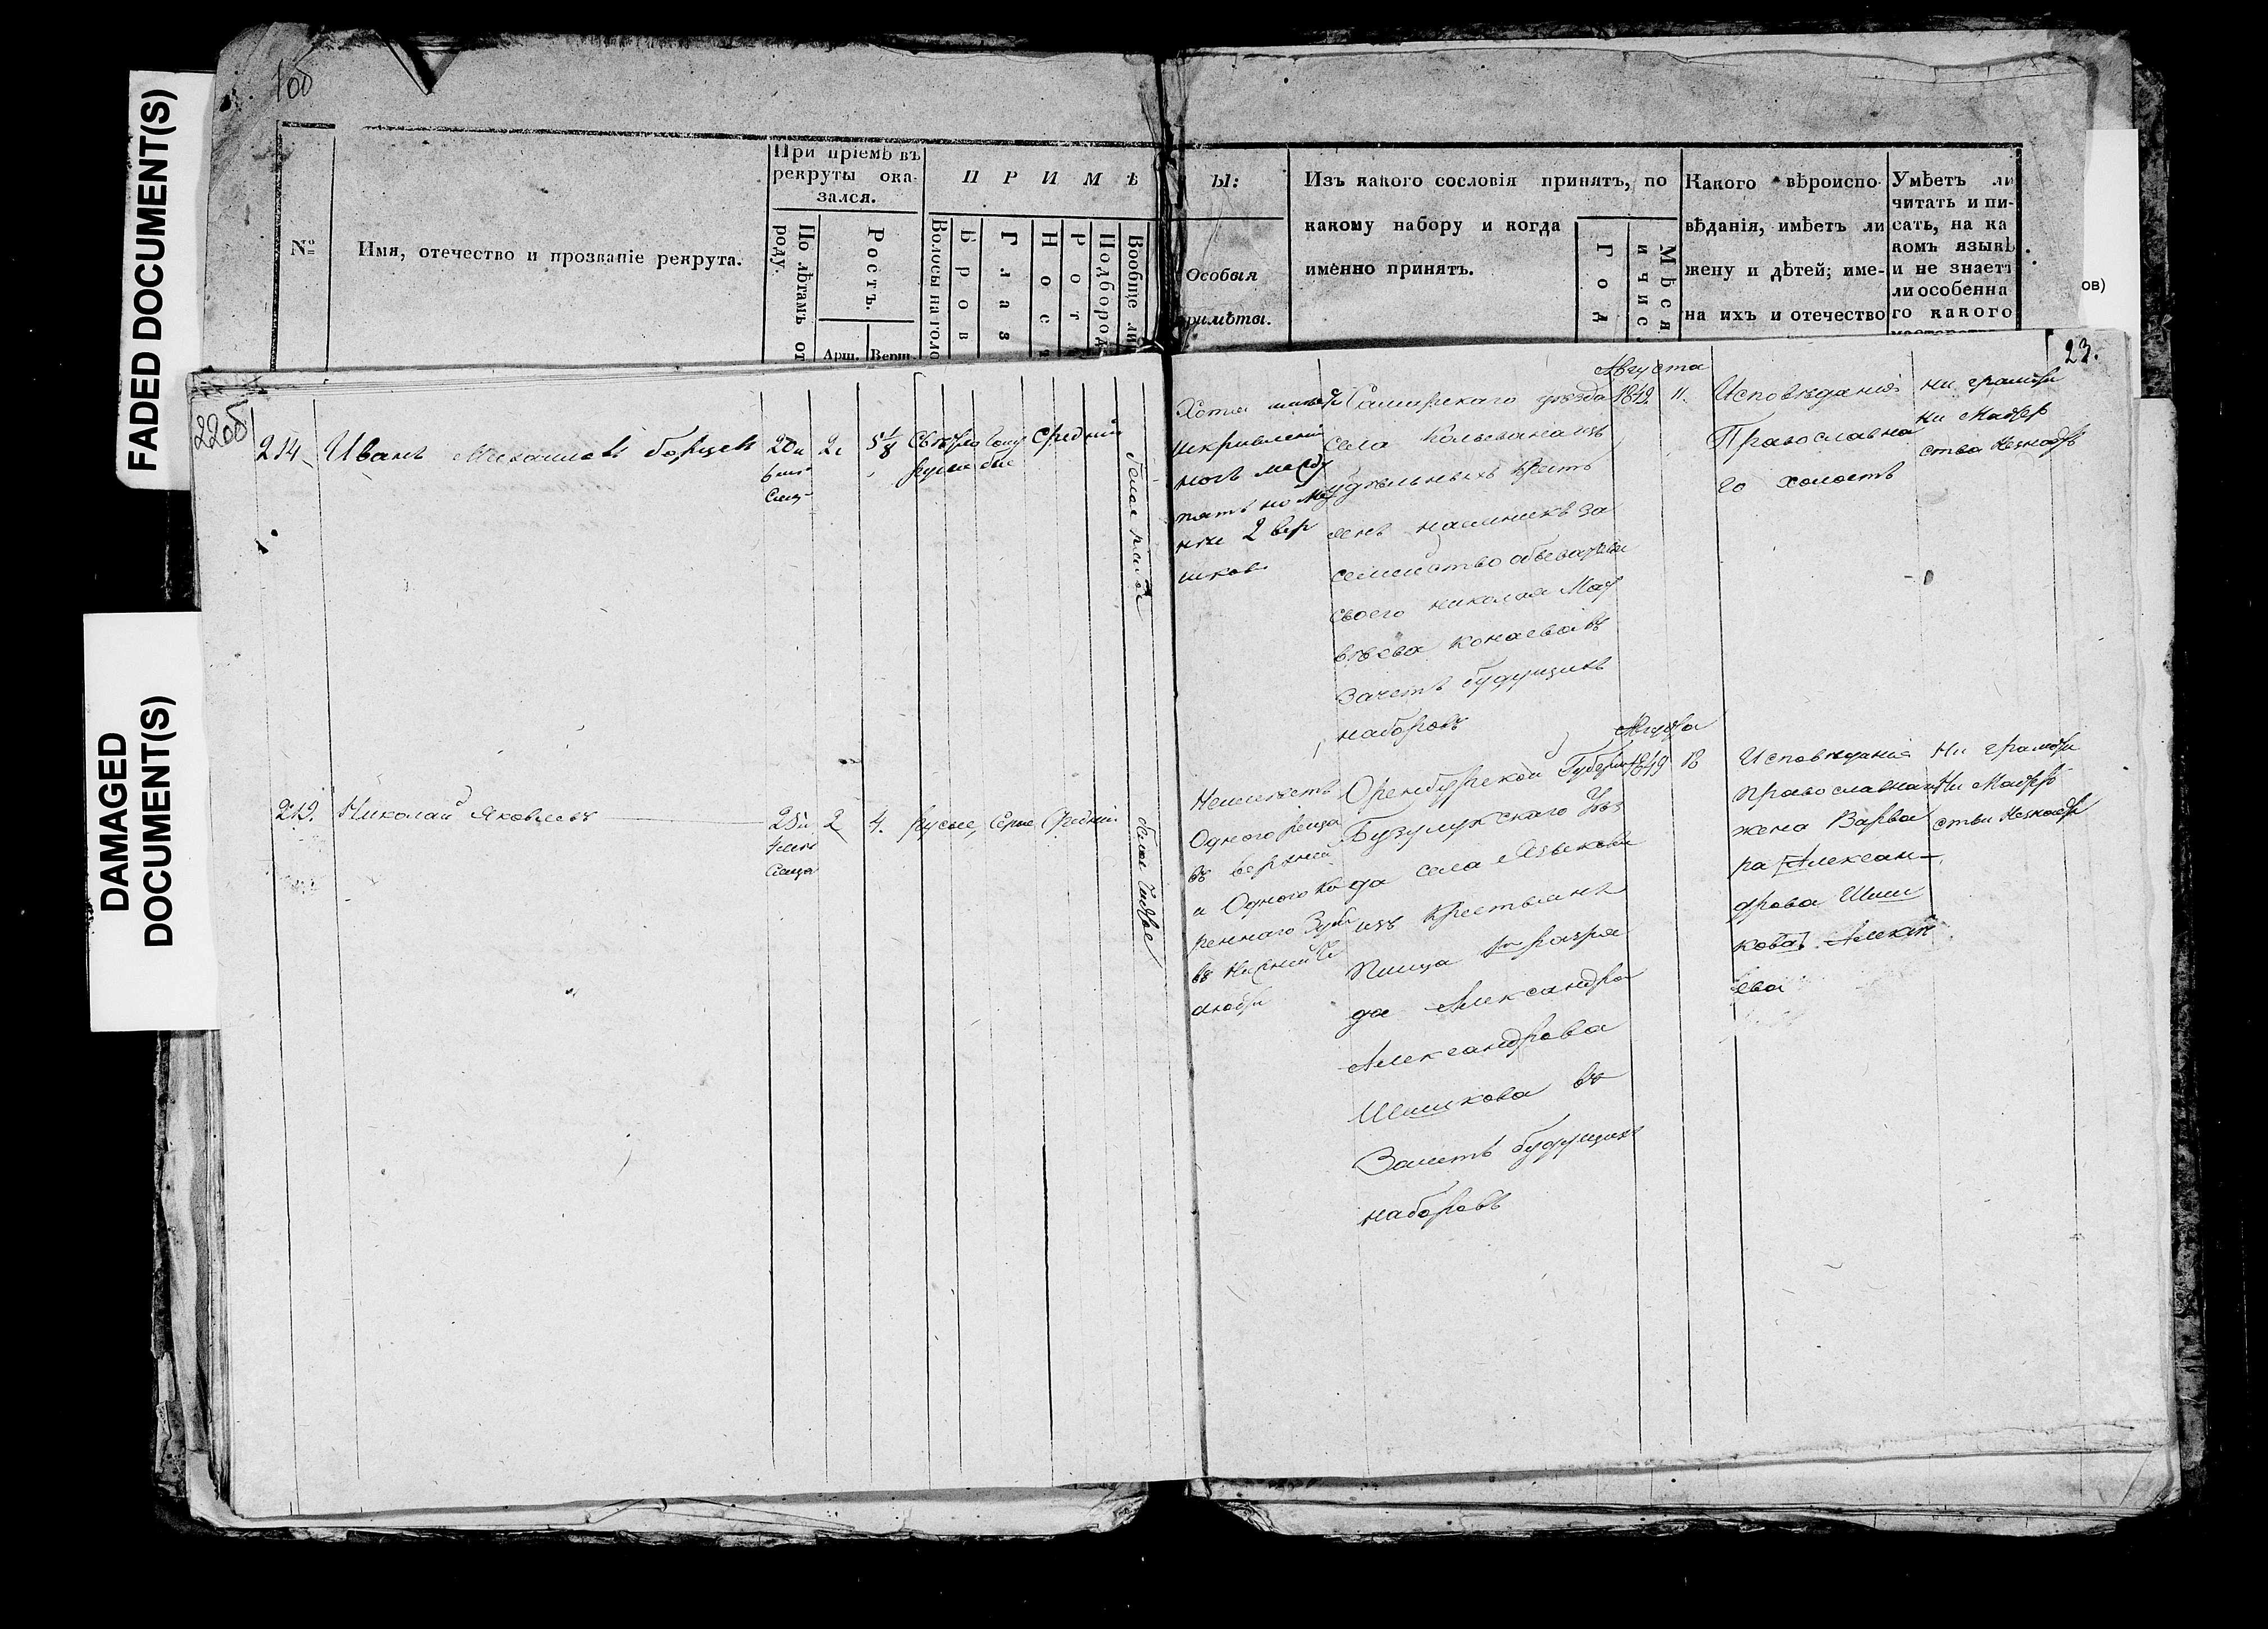 FADED DOCUMENT(S)
DAMAGED
DOCUMENT(S)
10б
№
Имя, отечество и прозваніе рекрута.
При пріемѣ въ
рекруты ока-
зался.
По лѣтамъ от
роду.
Ростъ.
Арш.
Верш.
ПРИМѢ
Волосы на голо
Бров
Глаз
Носъ
Рот
Подбород
Вообще ли
Ы:
Особыя
римѣты.
Изъ какого сословія принятъ, по
какому набору и когда
именно принятъ.
Год
Мѣся
и чис.
Какого вѣроиспо-
вѣданія, имѣетъ ли
жену и дѣтей; име-
на ихъ и отечество
Умѣетъ ли
читать и пи-
сать, на ка
комъ языкѣ
и не знаетъ
ли особенна
го какого
ов)
23.
22об
214. Иванъ Михаиловъ Борцевъ
20 и
2
5 1/8
Свѣтло
русые
Голу
бые
Средній
Хотя
искривленіе
ногъ между
пятъ но
2 вер
шковъ
уѣзда
села
удѣльныхъ кресть
янъ наемникъ за
семейство
своего Николая Мат
вѣева въ
зачетъ будущихъ
наборовъ
Августа
1849. 11.
Исповѣданія
Православна
го холостъ
ни грамоты
ни мастер
ства незнаетъ
215. Николай Яковлевъ
25 и
2
4.
русые, Сѣрые, Средній
белое чистое
Неимѣетъ
Одного резца
въ верхней
и Одного ко
реннаго зуба
въ нижней че
люсти
Оренбургской Губерніи
Бузулукскаго Уѣз
да села Языкова
изъ Крестьянъ
да Александра
Александрова
Шишкова въ
Зачетъ будущихъ
наборовъ
Августа
1849 18
Исповѣданія
православнаго
жена Варва
ра Алексан-
дрова Шиш
кова
ева
Ни грамоты
Ни Мастер
ства незнаетъ